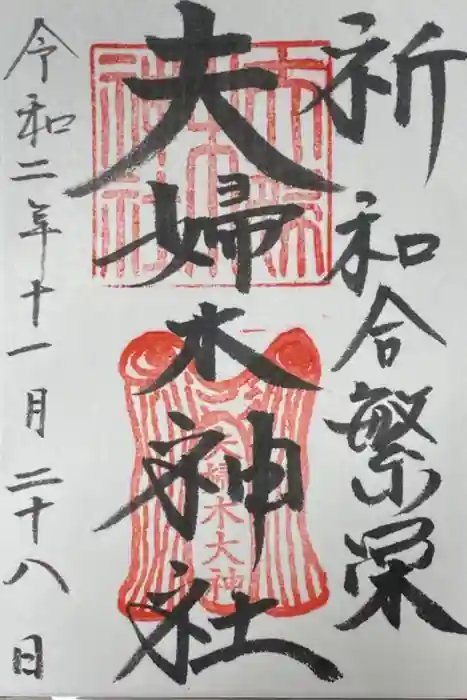 祈和合繁栄
夫婦木神社
夫婦木大神
令和二年十一月二十八日